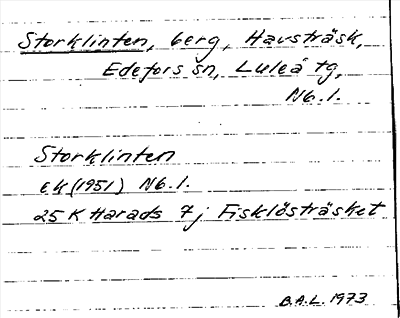 Storklinten, berg, Havsträsk,
Edefors sn, Luleå tg,
Nb.l.
Storklinten
e.k (1951) Nb.l.
25 K Harads 7j Fisklösträsket
B.A.L. 1973